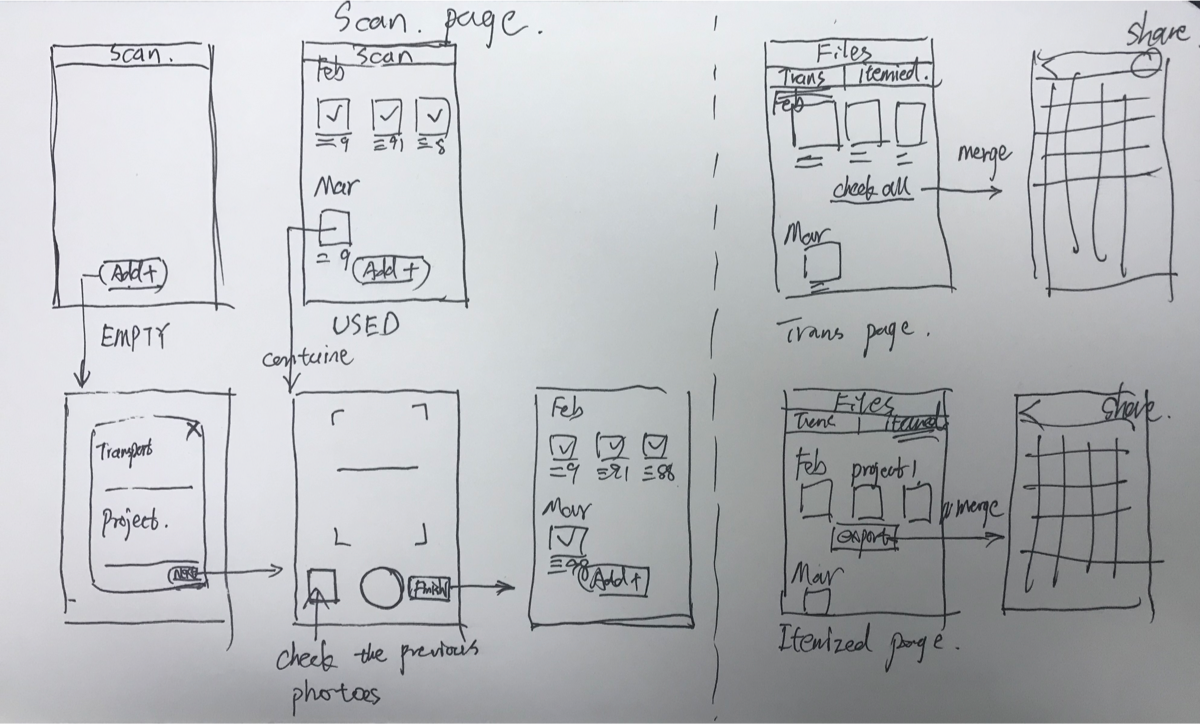 Scan page.
Scan.
Add+
EMPTY
Scan
Feb
=9 =91 =8
Mar
=9
Add+
USED
contuine
Transport
Project.
X
Next
Finish
check the previous
photoes
Feb
=9 =21 =88
Mar
=98
Add+
Files
Trans itemied.
Feb
check all
Mar
merge
Share
Trans page.
Files
Feb project1
export
Mar
merge
Share.
Itemized page.